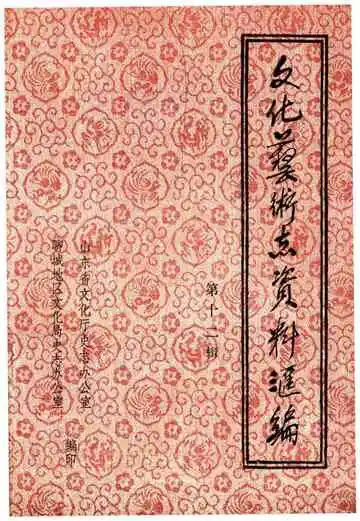 文化艺術志資料滙編
第十二辑
山东省文化厅史志办公室
聊城地区文化局史志办公室
编印